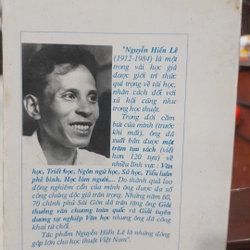 "Nguyễn Hiến Lê
(1912-1984) là một
trong vài học giả
được giới trí thức
quý trọng về tài học,
nhân cách đối với
xã hội cũng như
trong học thuật.
Trong đời cầm
bút của mình (trước
khi mất), ông đã
xuất bản được một
trăm tựa sách (viết)
hơn 120 tựa) về
nhiều lĩnh vực: Văn
học, Triết học, Ngôn ngữ học, Sử học, Tiểu luận
phê bình, Học làm người,... Do thành quả lao
động nghiêm cẩn của mình ông được đa số
công chúng độc giả trân trọng. Những năm 60,
70 chính phủ Sài Gòn đã trân trọng tặng ông Giải
thưởng văn chương toàn quốc và Giải tuyên
dương sự nghiệp Văn học nhưng ông đã công
khai từ chối.
Tác phẩm Nguyễn Hiến Lê là những đóng
góp lớn cho học thuật Việt Nam".